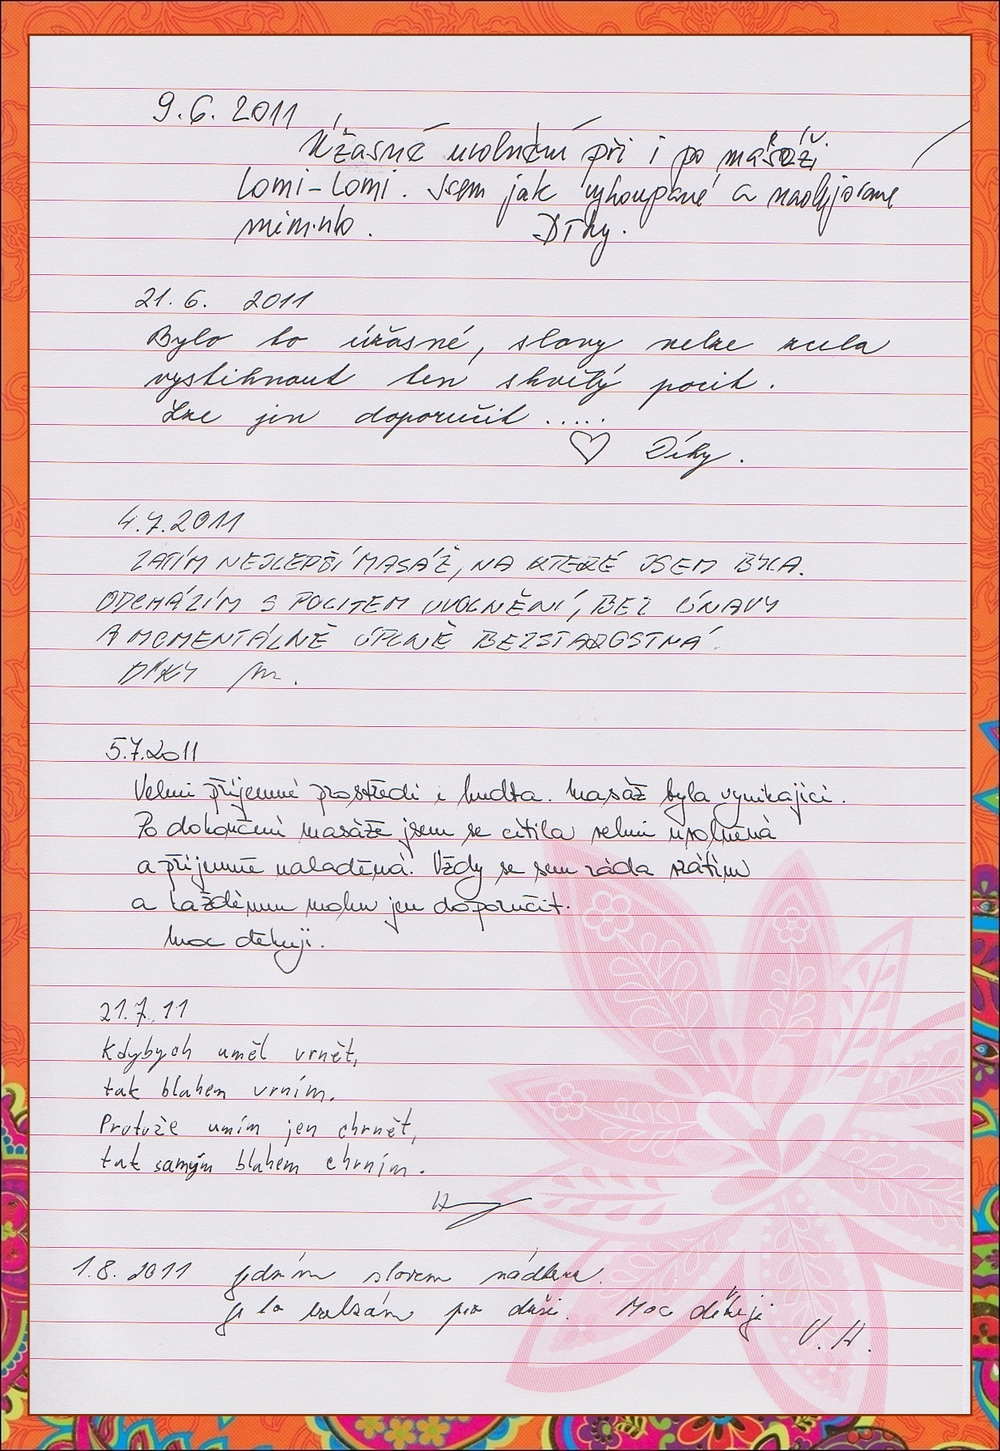 9.6.2011
Úžasné uvolnění při i po masáži
Lomi-Lomi. Jsem jak vyhoupané a naolejované
miminko. Díky.
21.6. 2011
Bylo to úžasné, slovy nelze zcela
vystihnout ten skvělý pocit.
Lze jen doporučit .....
♡ Díky.
4.7.2011
ZATÍM NEJLEPŠÍ MASÁŽ, NA KTERÉ JSEM BYLA.
ODCHÁZÍM S POCITEM UVOLNĚNÍ, BEZ ÚNAVY
A MOMENTÁLNĚ ÚPLNĚ BEZSTAROSTNÁ.
DÍKY
5.7.2011
Velmi příjemné prostředí i hudba. Masáž byla vynikající.
Po dokončení masáže jsem se cítila velmi uvolněná
a příjemně naladěná. Vždy se sem ráda vrátím
a každému mohu jen doporučit.
Moc děkuji.
21.7.11
Kdybych uměl vrnět,
tak blahem vrním.
Protože umím jen chrnět,
tak samým blahem chrním.
1.8.2011 jedním slovem nádhera.
je to balzám pro duši. Moc děkuji
V. H.